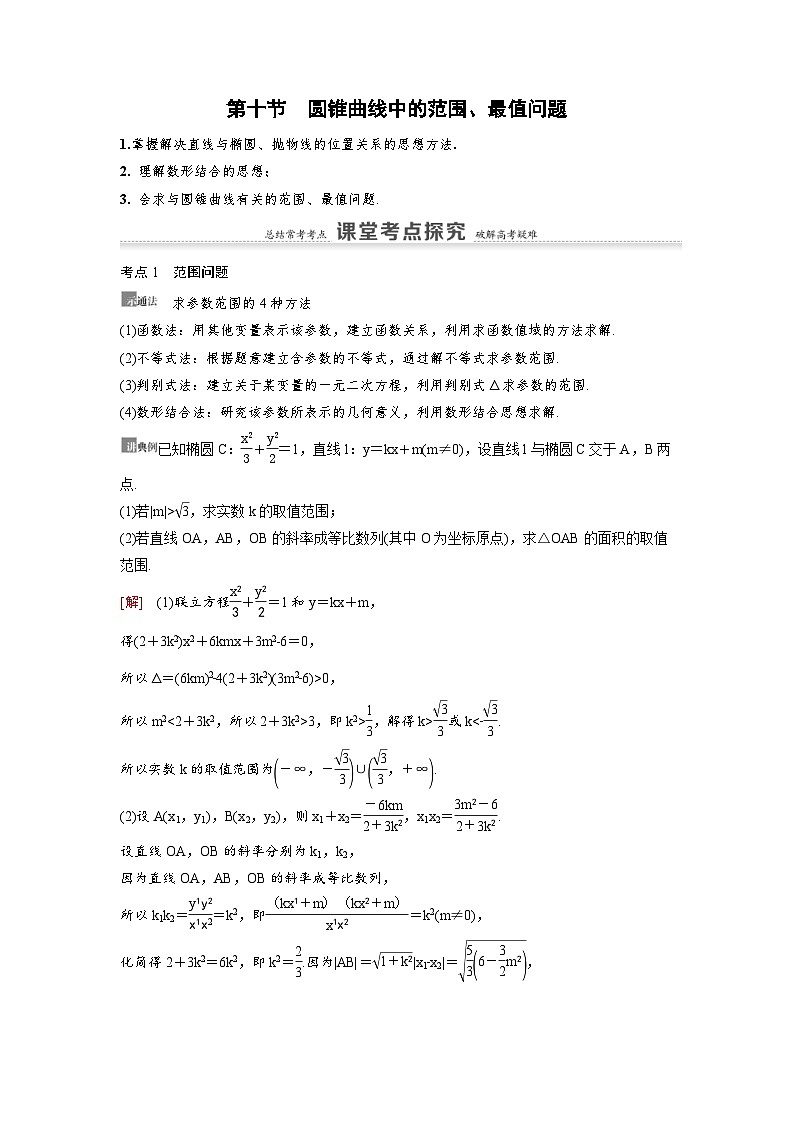 第十节　圆锥曲线中的范围、最值问题
1.掌握解决直线与椭圆、抛物线的位置关系的思想方法.
2. 理解数形结合的思想；
3. 会求与圆锥曲线有关的范围、最值问题.
总结常考考点 课堂考点探究 破解高考疑难
考点1　范围问题
示通法　求参数范围的4种方法
(1)函数法：用其他变量表示该参数，建立函数关系，利用求函数值域的方法求解.
(2)不等式法：根据题意建立含参数的不等式，通过解不等式求参数范围.
(3)判别式法：建立关于某变量的一元二次方程，利用判别式Δ求参数的范围.
(4)数形结合法：研究该参数所表示的几何意义，利用数形结合思想求解.
讲典例已知椭圆C：x²/3＋y²/2＝1，直线l：y＝kx＋m(m≠0)，设直线l与椭圆C交于A，B两
点.
(1)若|m|>√3，求实数k的取值范围；
(2)若直线OA，AB，OB的斜率成等比数列(其中O为坐标原点)，求△OAB的面积的取值
范围.
[解]　(1)联立方程x²/3＋y²/2＝1和y＝kx＋m，
得(2＋3k²)x²＋6kmx＋3m²-6＝0，
所以Δ＝(6km)²-4(2＋3k²)(3m²-6)>0，
所以m²<2＋3k²，所以2＋3k²>3，即k²>1/3，解得k>√3/3或k<-√3/3.
所以实数k的取值范围为(－∞，－√3/3)∪(√3/3，＋∞).
(2)设A(x₁，y₁)，B(x₂，y₂)，则x₁＋x₂＝－6km/(2＋3k²)，x₁x₂＝(3m²－6)/(2＋3k²).
设直线OA，OB的斜率分别为k₁，k₂，
因为直线OA，AB，OB的斜率成等比数列，
所以k₁k₂＝y¹y²/x¹x²＝k²，即（kx¹＋m）（kx²＋m）/x¹x²＝k²(m≠0)，
化简得2＋3k²＝6k²，即k²＝2/3.因为|AB|＝√(1＋k²)|x₁-x₂|＝√(5/3(6－3/2m²))，